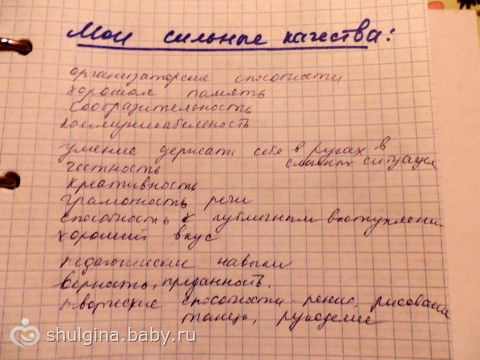 Мои сильные качества:
организаторские способности
хорошая память
сообразительность
коммуникабельность
умение держать себя в руках в
сложных ситуация
честность
креативность
грамотность речи
способность к публичным выступления
хороший вкус
педагогические навыки
верность, преданность.
творческие способности пение, рисовани
танцы, рукоделие
shulgina.baby.ru